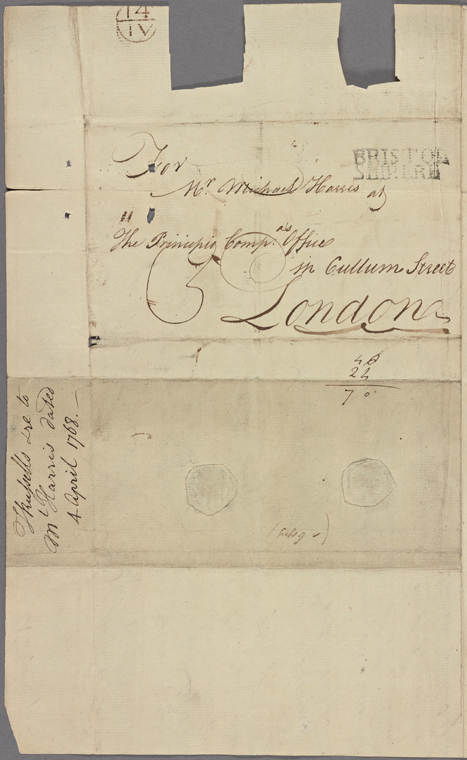 14
IV
BRISTOL
SHIP LRE
For
Mr. Michael Harris at
The Principio Comp:as Office
in Cullum Street
London
46
24
70
Thrifalls Lre to
Mr Harris dated
4 April 1768.